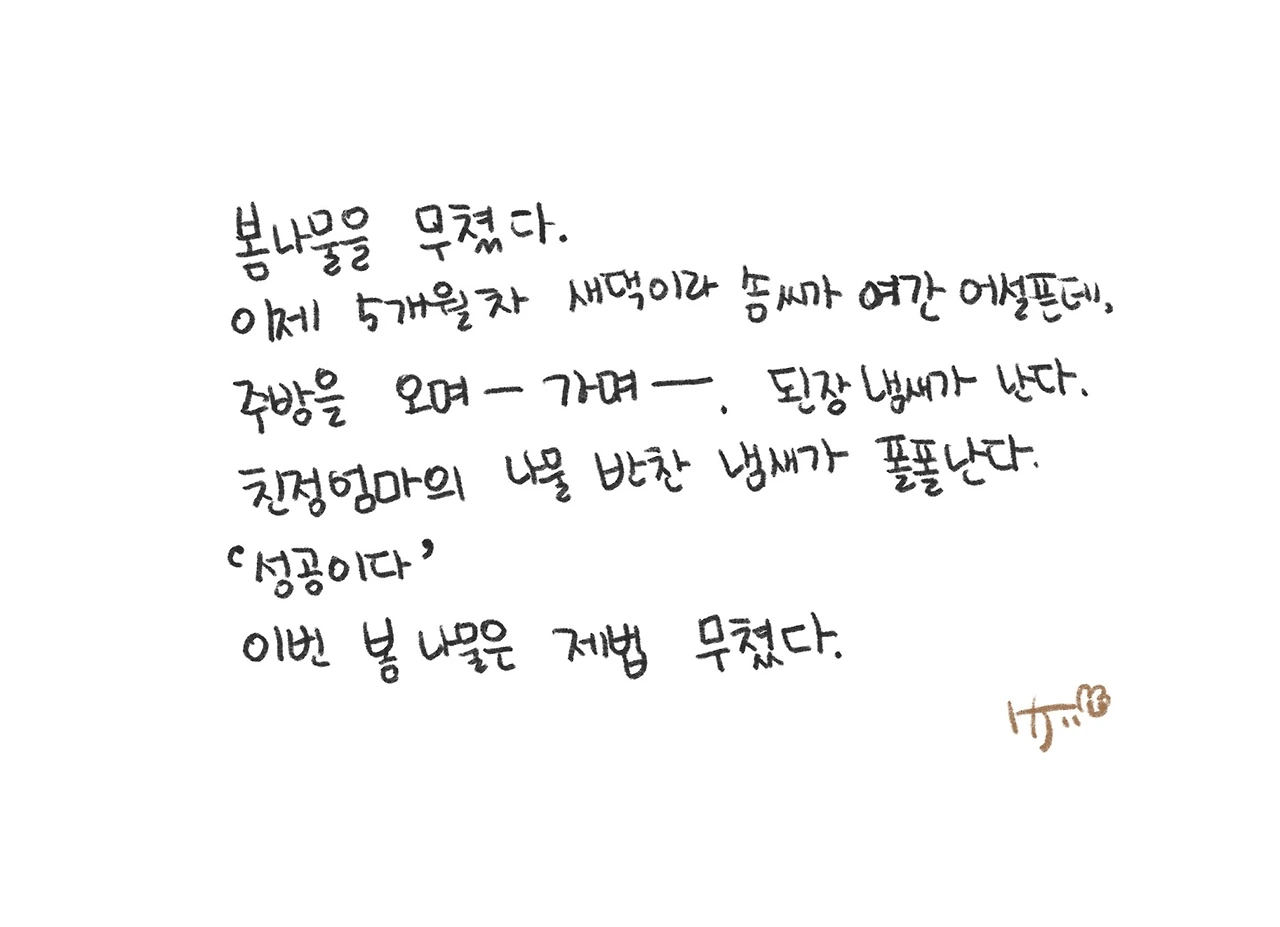 봄나물을 무쳤다.
이제 5개월차 새댁이라 솜씨가 여간 어설픈데,
주방을 오며— 가며—. 된장 냄새가 난다.
친정엄마의 나물 반찬 냄새가 폴폴난다.
‘성공이다’
이번 봄 나물은 제법 무쳤다.